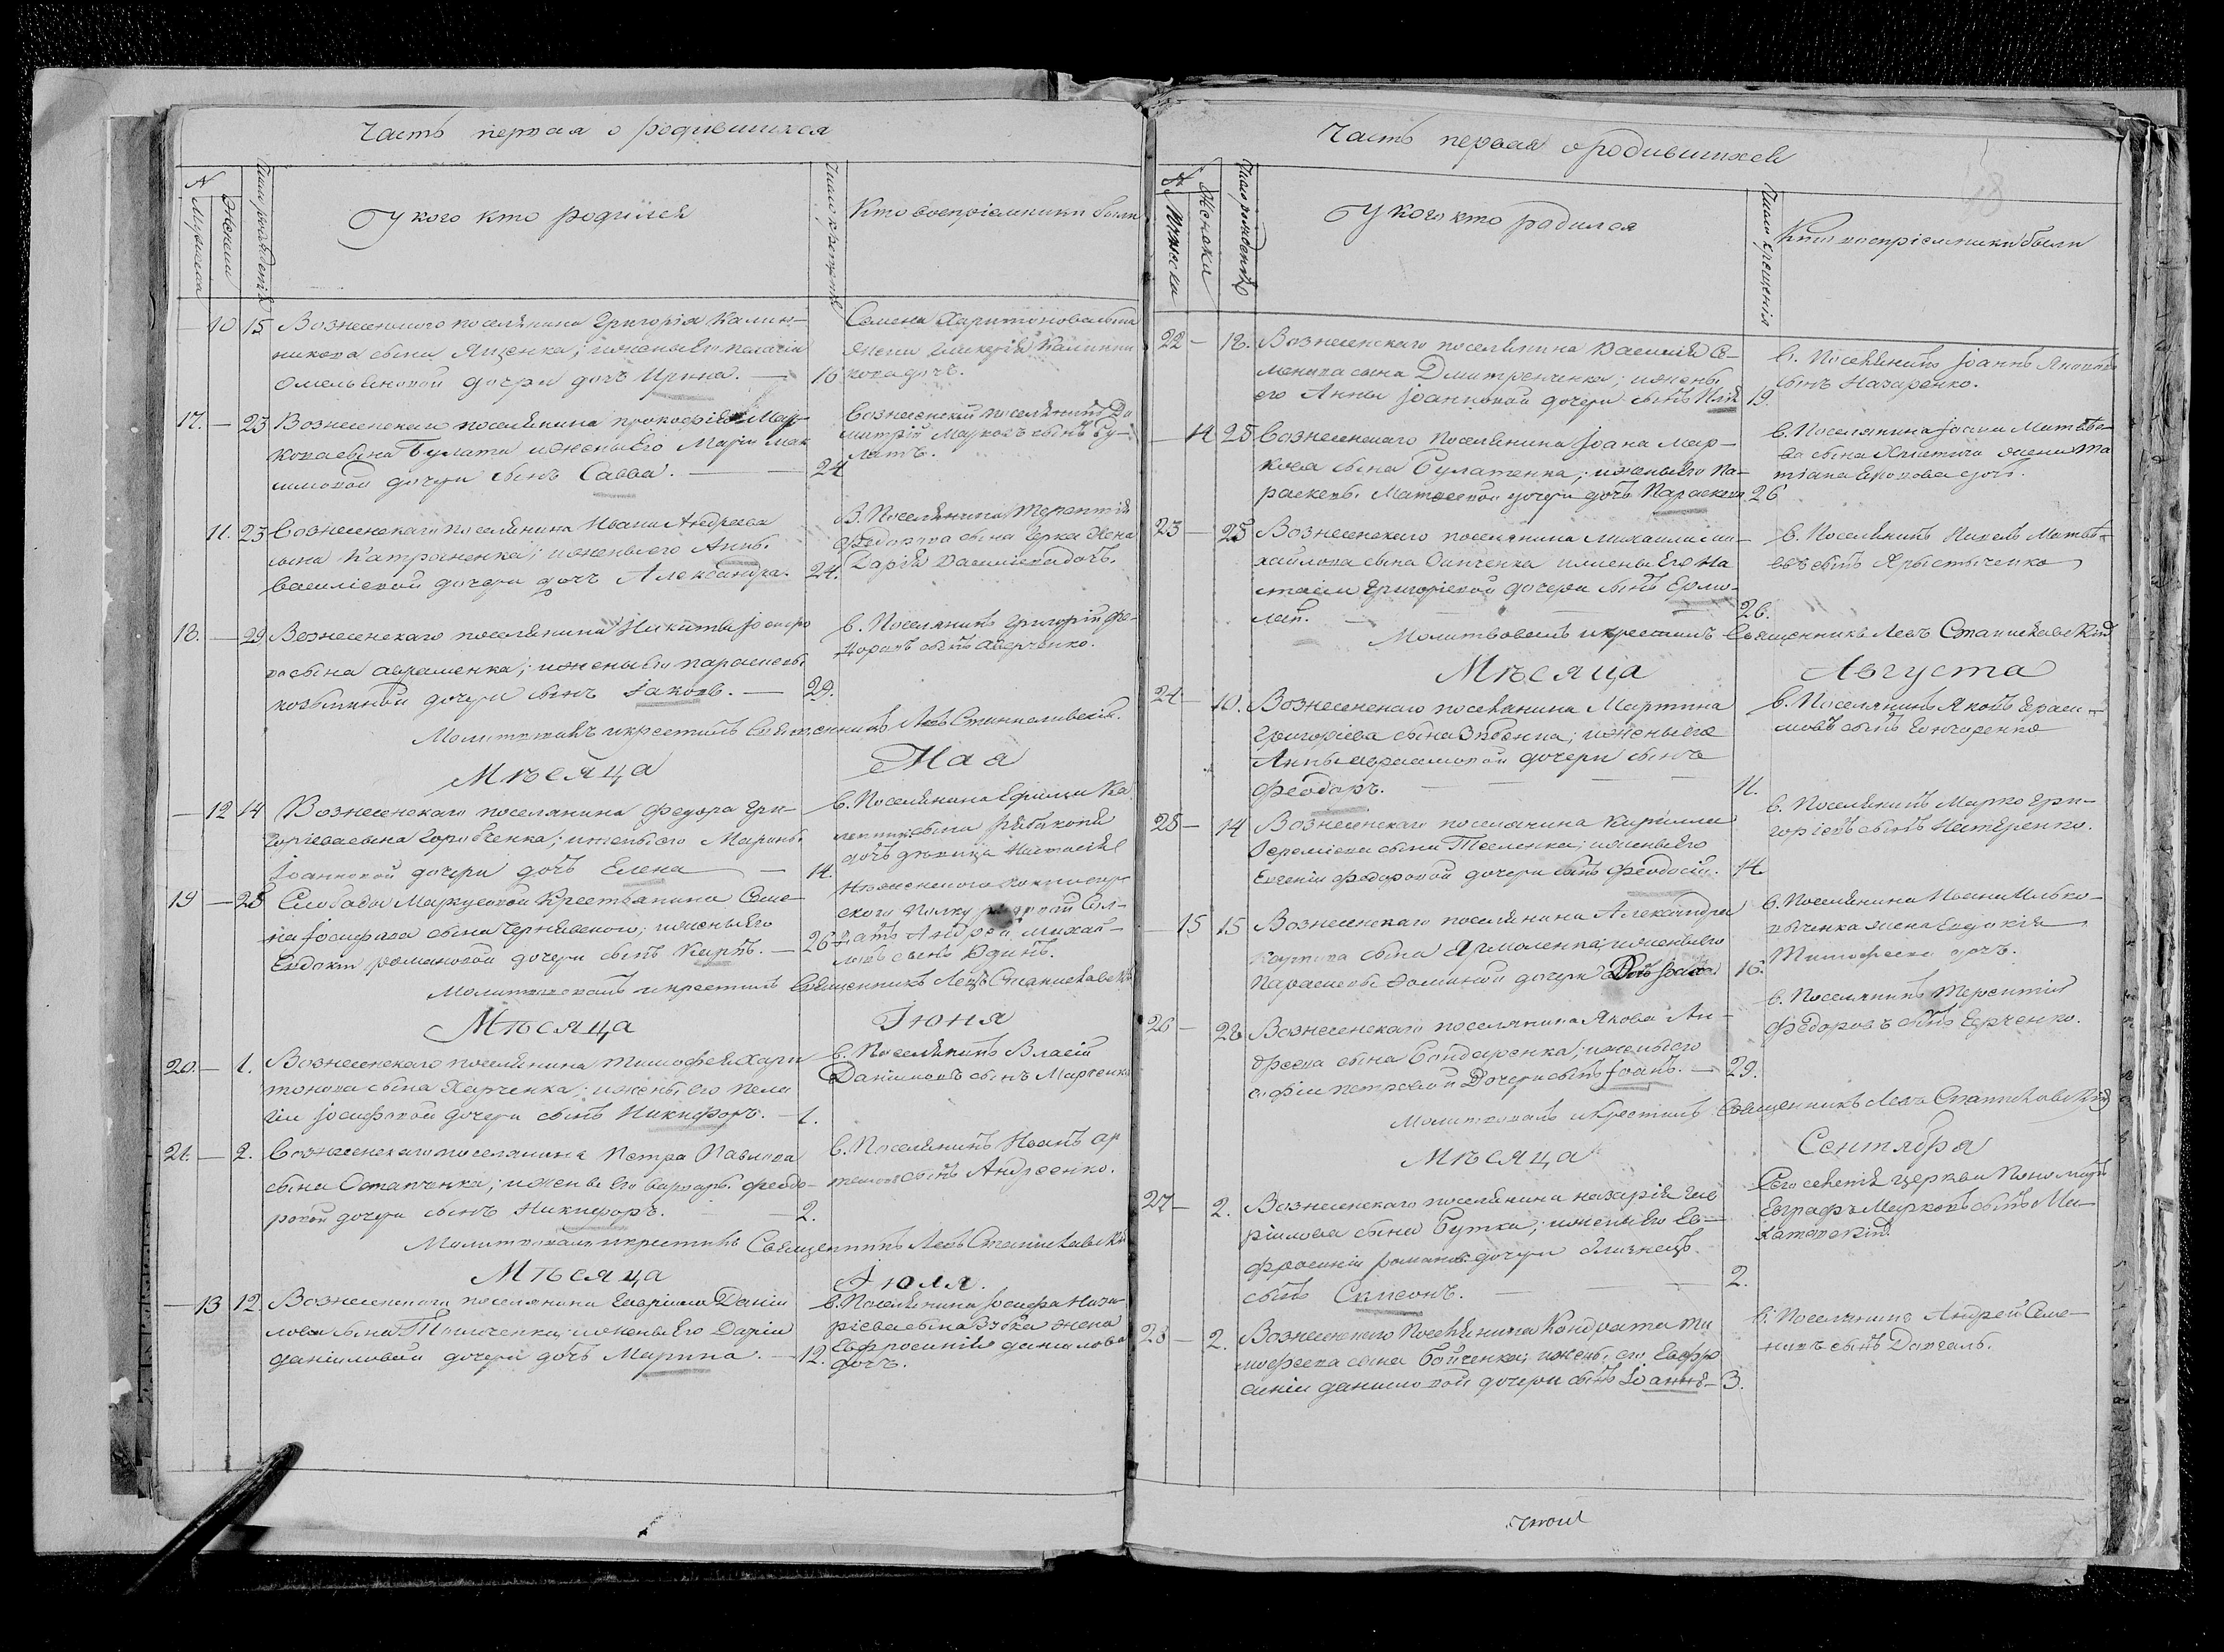 Часть первая о родившихся
N
Мужеска
Женски
Число рожденія
У кого кто родился
Число крещенія
Кто воспріемники были
10 15 Вознесенского поселянина Григорія Калин-
никова сына Яценка; и жены его Пелагіи
Омельяновой дочери дочь Ирина. — 16
Семена Харитонова сына
жена Гликерія Калинни
кова дочь.
17. — 23 Вознесенскаго поселянина Прокофія Мар-
кова сына Булата и жены его Маріи Мак
симовой дочери сынъ Савва. — 24
Вознесенскій поселянинъ Ди
митрій Марковъ сынъ Бу-
латъ.
11. 23 Вознесенскаго поселянина Ивана Андреева
сына Катраненка; и жены его Анны
Василіевой дочери дочь Александра. 24.
В. Поселянина Терентія
Федорова сына жена
Дарія Василіева дочь.
18. — 29 Вознесенскаго поселянина Никиты Іосифо
ва сына Авраменка; и жены его Параскевы
Козьминой дочери сынъ Іаковъ. — 29.
В. Поселянинъ Григорій Фе-
доровъ сынъ Аверченко.
Молитвовалъ и крестилъ Священникъ Левъ Станиславскій.
Мѣсяца Маа
— 12 14 Вознесенскаго поселянина Федора Гри-
горіева сына Горобченка; и жены его Марины
Іоанновой дочери дочь Елена — 14.
В. Поселянина Ефима Ка
сына
дочь девица Наталія
19 — 25 Слободы Маркусовой Крестьянина Семе-
на Іосифова сына Чернявского; и жены его
Евдокіи Романовой дочери сынъ Карпъ. — 26
Нѣженскаго
ского Полку рядовой Сол-
датъ Андрей Михай-
ловъ сынъ
Молитвовалъ и крестилъ Священникъ Левъ Станиславскій
Мѣсяца Іюня
20. — 1. Вознесенскаго поселянина Тимофея Хари
тонова сына Харченка; и жены его Пела
гіи Іосифовой дочери сынъ Никифоръ. — 1.
В. Поселянинъ Власій
Даніиловъ сынъ Марченко
21. — 2. Вознесенскаго поселянина Петра Павлова
сына Остапченка; и жены его Варвары Феодо-
ровой дочери сынъ Никифоръ. — 2.
В. Поселянинъ Иванъ Ар
темовъ сынъ Андреенко.
Молитвовалъ и крестилъ Священникъ Левъ Станиславскій
Мѣсяца Іюля.
— 13 12. Вознесенскаго поселянина Гавріила Даніи
лова сына и жены его Даріи
Даніиловой дочери дочь Марина. — 12.
В. Поселянина Іосифа Наза-
ріева сына жена
Евфросинія Даниилова
дочь.
Часть первая о родившихся
18
N
Мужеска
Женска
Число рожденія
У кого кто родился
Число крещенія
Кто воспріемники были
22 — 18. Вознесенскаго поселянина Василія Се-
менова сына Дмитренченка; и жены
его Анны Іоанновой дочери сынъ Илія 19.
В. Поселянинъ Іоаннъ Яковлевъ
сынъ Назаренко.
— 14 25 Вознесенскаго поселянина Іоана Мар-
кова сына Булатенка; и жены его Па-
раскевы Матвеевой дочери дочь Параскева 26
В. Поселянина Іоана Матвее-
ва сына жена Та
тіана дочь.
23 — 25 Вознесенскаго поселянина Михаила Ми-
хайлова сына и жены его На
стасіи Григоріевой дочери сынъ Ермо-
лай. — 26.
В. Поселянинъ Матвѣ-
евъ сынъ
Молитвовалъ и крестилъ Священникъ Левъ Станиславскій
Мѣсяца Августа
24 — 10. Вознесенскаго поселянина Мартина
Григоріева сына и жены его
Анны Авраамовой дочери сынъ
Феодоръ. — 11.
В. Поселянинъ Яковъ Ераси-
мовъ сынъ Гончаренко
25 — 14 Вознесенскаго поселянина Кирилла
Іереміева сына Тесленка; и жены его
Евгеніи Федоровой дочери сынъ Феодосій. 14.
В. Поселянинъ Марко Гри-
горіевъ сынъ Нестеренко.
— 15 15 Вознесенскаго поселянина Александра
Карпова сына Ярмоленка; и жены его
Параскевы Фоминой дочери Дочь 16.
В. Поселянина Ивана
жена Евдокія
Тимофеева дочь.
26 — 28 Вознесенскаго поселянина Якова Ан-
дреева сына Бондаренка; и жены его
Софіи Петровой Дочери сынъ Іоанъ. — 29.
В. Поселянинъ Терентій
Федоровъ сынъ
Молитвовалъ и Крестилъ Священникъ Левъ Станиславскій
Мѣсяца Сентября
27 — 2. Вознесенскаго поселянина Назарія Гав
ріилова сына Бутка; и жены его Ев-
фросиніи Романов. дочери близнецъ
сынъ Симеонъ. — 2.
церкви Пономарь
Евграфъ Марковъ сынъ
28 — 2. Вознесенскаго Поселянина Кондрата Ти
мофеева сына Бойченка; и жены его Евфро
синіи Даниловой дочери сынъ Іоаннъ — 3.
В. Поселянинъ Андрей Семе-
новъ сынъ
Итого